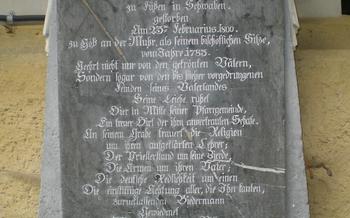 zu Füßen in Schwaben.
gestorben
Am 25ᵗᵉⁿ Februarius 1800.
zu Göß an der Muhr, als seinem bischöflichen Sitze,
vom Jahre 1785.
Geehrt nicht nur von den gekrönten Vätern,
Sondern sogar von den bis hieher vorgedrungenen
Feinden seines Vaterlandes
Seine Leiche ruhet
Hier in Mitte seiner Pfarrgemeinde,
Ein treuer Hirt der ihm anvertrauten Schafe.
An seinem Grabe trauert die Religion
um ihren aufgeklärten Lehrer;
Der Priesterstand um seine Zierde,
Die Armen um ihren Vater;
Die deutsche Redlichkeit um einen
Die einstimmige Achtung aller, die Ihn kannten,
zurücklassenden Biedermann
Gewiedmet